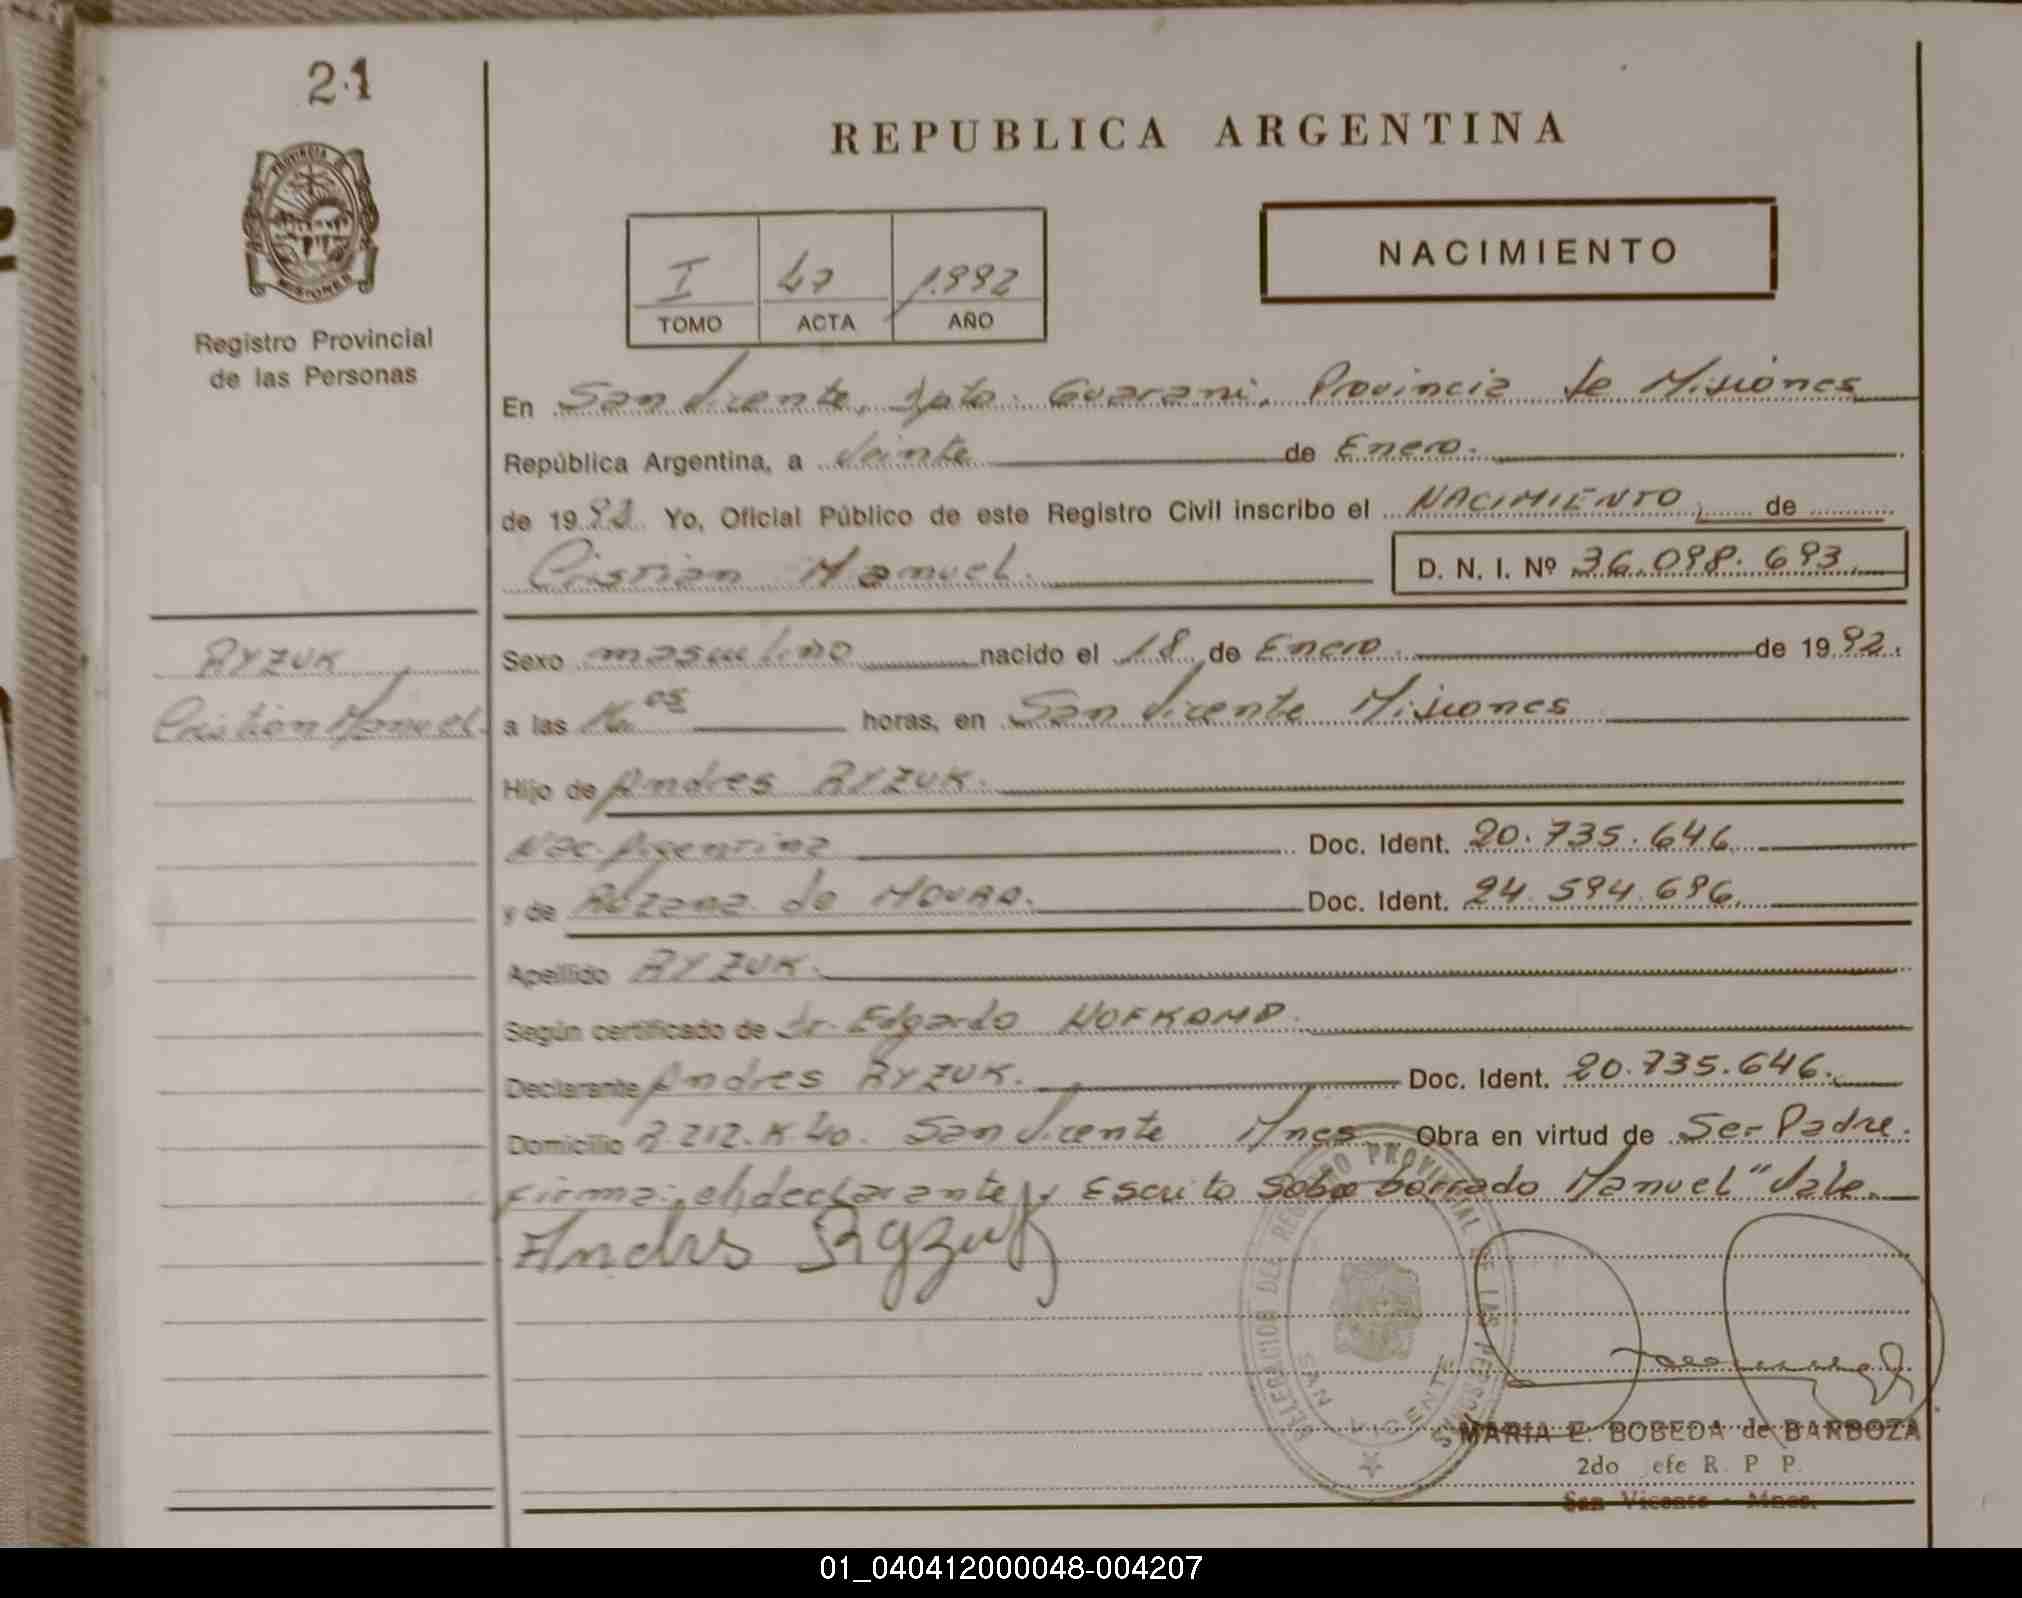 21
REPUBLICA ARGENTINA
NACIMIENTO
I 47 1992
TOMO ACTA AÑO
PROVINCIA DE MISIONES
Registro Provincial
de las Personas
En San Vicente, Dpto. Guarani, Provincia de Misiones
República Argentina, a Veinte de Enero.
de 1992 Yo, Oficial Público de este Registro Civil inscribo el NACIMIENTO, de
Cristian Manuel. D. N. I. Nº 36.098.693
RYZUK
Cristian Manuel.
Sexo masculino nacido el 18 de Enero. de 1992.
a las 16 05 horas, en San Vicente Misiones
Hijo de Andres RYZUK.
Nac. Argentina Doc. Ident. 20.735.646
y de Rozana de MOURA. Doc. Ident. 24.594.696
Apellido RYZUK.
Según certificado de Dr. Edgardo HOFKAMP.
Declarante Andres RYZUK. Doc. Ident. 20.735.646.
Domicilio R 212. K 40. San Vicente Mnes Obra en virtud de Ser Padre.
Firma: el declarante y Escrito sobre borrado Manuel" Vale.
Andrs Ryzuk
DELEGACION DEL REGISTRO PROVINCIAL DE LAS PERSONAS
SAN VICENTE
MARIA E. BOBEDA de BARBOZA
2do efe R. P P.
San Vicente - Mnes.
01_040412000048-004207